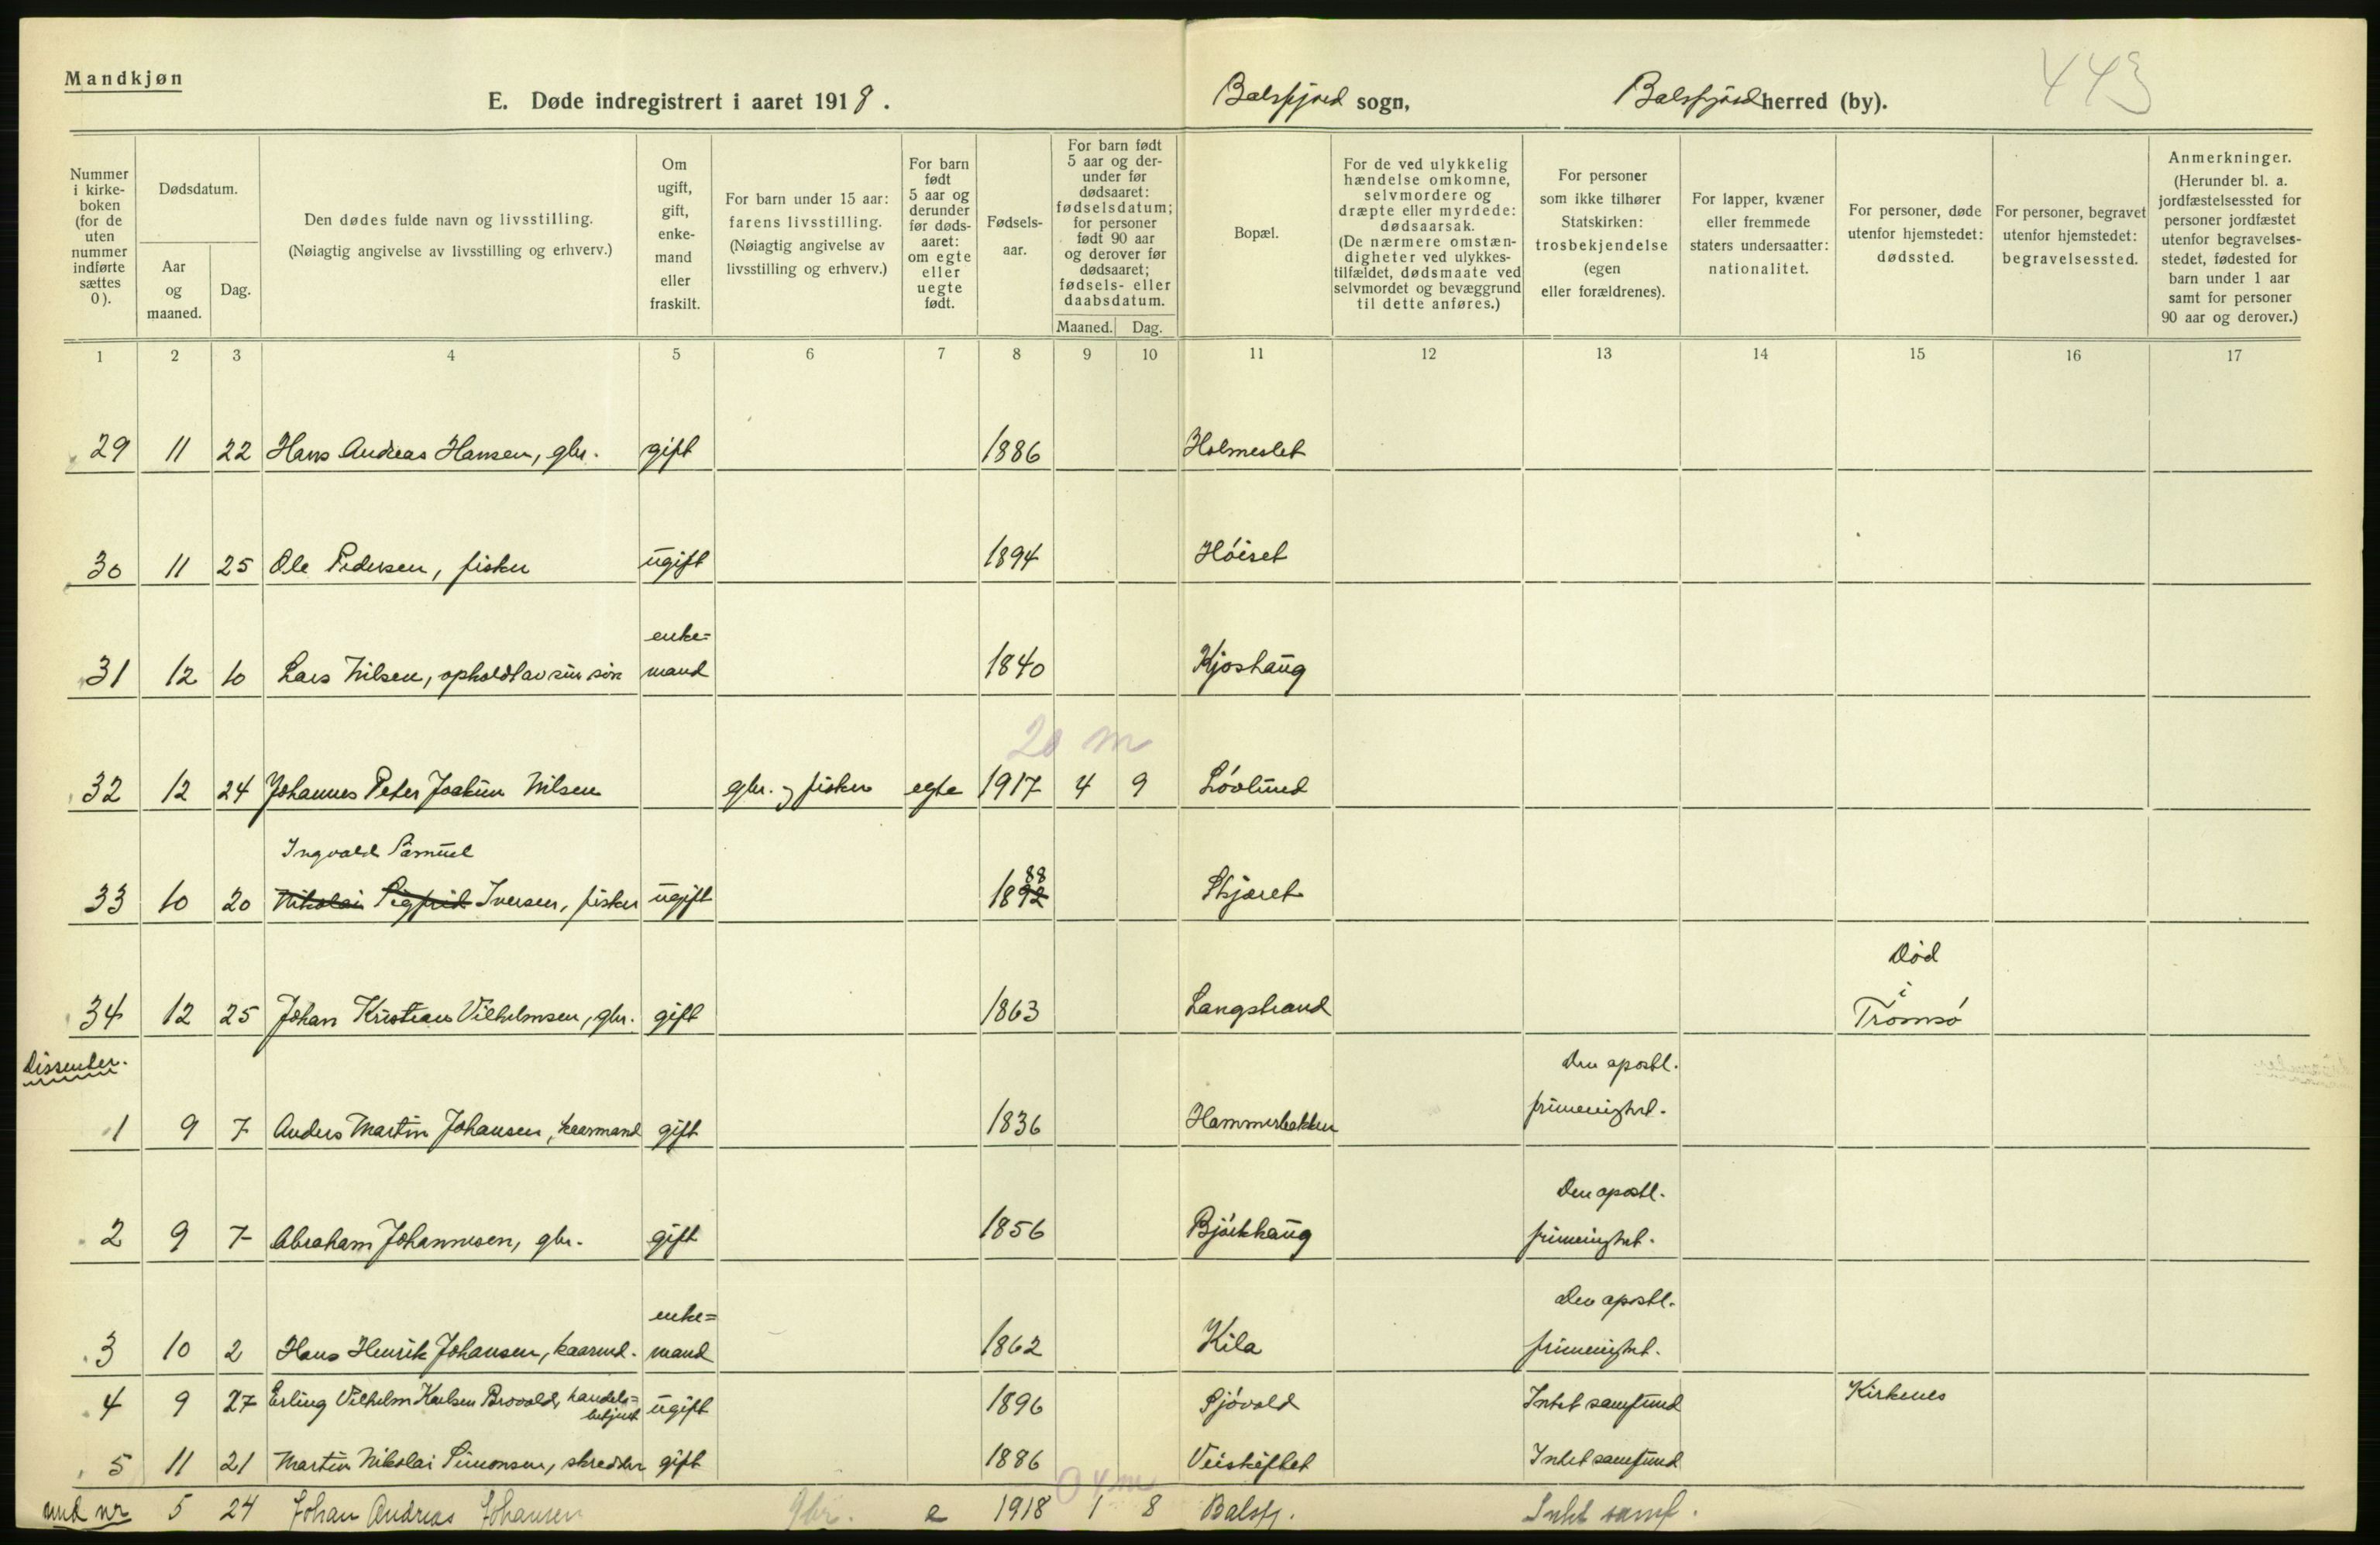 Mandkjøn
E. Døde indregistrert i aaret 1918.
Balsfjord sogn, Balsfjord herred (by).
443
Nummer i kirkeboken (for de uten nummer indførte sættes 0).
Dødsdatum.
Aar og maaned.
Dag.
Den dødes fulde navn og livsstilling.
(Nøiagtig angivelse av livsstilling og erhverv.)
Om ugift, gift, enkemand eller fraskilt.
For barn under 15 aar: farens livsstilling.
(Nøiagtig angivelse av livsstilling og erhverv.)
For barn født 5 aar og derunder før dødsaaret: om egte eller uegte født.
Fødselsaar.
For barn født 5 aar og derunder før dødsaaret: fødselsdatum; for personer født 90 aar og derover før dødsaaret; fødsels- eller daabsdatum.
Maaned. Dag.
Bopæl.
For de ved ulykkelig hændelse omkomne, selvmordere og dræpte eller myrdede: dødsaarsak.
(De nærmere omstændigheter ved ulykkestilfældet, dødsmaate ved selvmordet og bevæggrund til dette anføres.)
For personer som ikke tilhører Statskirken: trosbekjendelse (egen eller forældrenes).
For lapper, kvæner eller fremmede staters undersaatter: nationalitet.
For personer, døde utenfor hjemstedet: dødssted.
For personer, begravet utenfor hjemstedet: begravelsessted.
Anmerkninger.
(Herunder bl. a. jordfæstelsessted for personer jordfæstet utenfor begravelsesstedet, fødested for barn under 1 aar samt for personer 90 aar og derover.)
1 2 3 4 5 6 7 8 9 10 11 12 13 14 15 16 17
29 11 22 Hans Andreas Hansen, gbr. gift 1886 Holmeslet
30 11 25 Ole Pedersen, fisker ugift 1894 Høiset
enke=
31 12 10 Lars Nilsen, opholdt av sin søn mand 1840 Kjoshaug
20 m
32 12 24 Johannes Peter Joakim Nilsen gbr. og fisker egte 1917 4 9 Løvlund
Ingvald Samuel
88
33 10 20 Nikolai Sigfrid Iversen, fisker ugift 1892 Skjæret
Død
i
34 12 25 Johan Kristian Vilhelmsen, gbr. gift 1863 Langstrand Tromsø
Dissenter.
Den apostl.
1 9 7 Anders Martin Johansen, kaarmand gift 1836 Hammerbakken frimenighet.
Den apostl.
2 9 7 Abraham Johannesen, gbr. gift 1856 Bjørkhaug frimenighet.
enke= Den apostl.
3 10 2 Hans Henrik Johansen, kaarmd. mand 1862 Kila frimenighet.
4 9 27 Erling Vilhelm Karlsen Brovold, handels=
betjent ugift 1896 Sjøvold Intet samfund Kirkenes
5 11 21 Martin Nikolai Simonsen, skredder gift 1886 Veiskiftet Intet samfund
0 4 m
und nr 5 24 Johan Andreas Johansen gbr. e 1918 1 8 Balsfj. Intet samf.